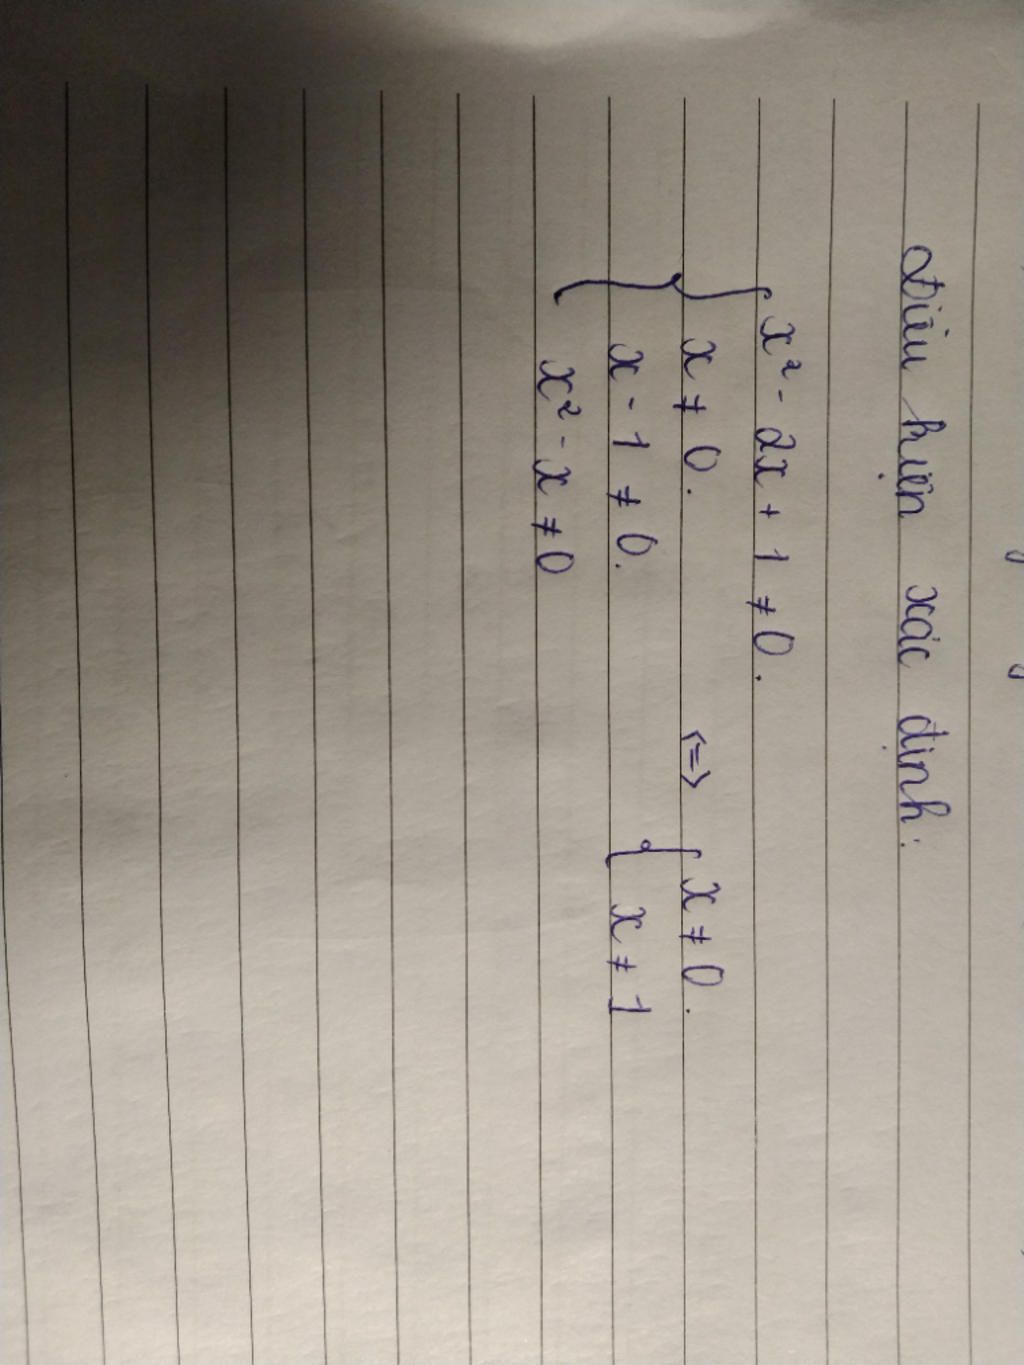 Điều kiện xác định:
x² - 2x + 1 ≠ 0.
x ≠ 0. <=> x ≠ 0.
x - 1 ≠ 0. x ≠ 1
x² - x ≠ 0